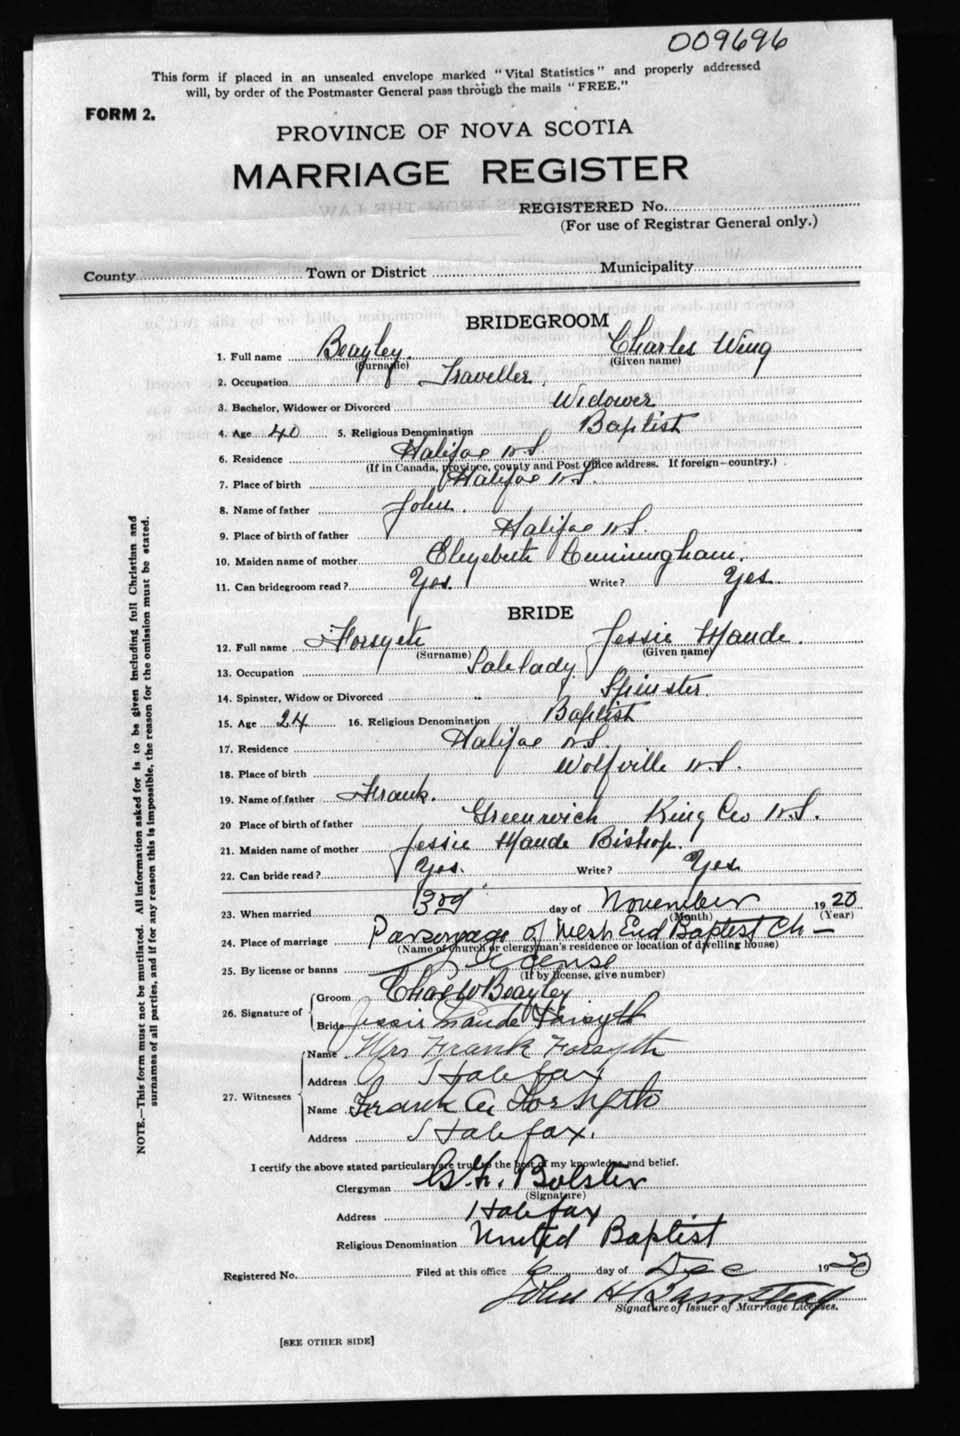 009696
This form if placed in an unsealed envelope marked "Vital Statistics" and properly addressed
will, by order of the Postmaster General pass through the mails "FREE."
FORM 2.
PROVINCE OF NOVA SCOTIA
MARRIAGE REGISTER
REGISTERED No.
(For use of Registrar General only.)
County Town or District Municipality
BRIDEGROOM
1. Full name Beayley. Charles Wing
(Surname) (Given name)
2. Occupation Traveller.
3. Bachelor, Widower or Divorced Widower
4. Age 40 5. Religious Denomination Baptist
6. Residence Halifax N.S.
(If in Canada, province, county and Post Office address. If foreign—country.)
7. Place of birth Halifax N.S.
8. Name of father John.
9. Place of birth of father Halifax N.S.
10. Maiden name of mother Elizabeth Cunningham.
11. Can bridegroom read? Yes. Write? Yes.
BRIDE
12. Full name Forsyth Jessie Maude.
(Surname) (Given name)
13. Occupation Saleslady.
14. Spinster, Widow or Divorced Spinster.
15. Age 24 16. Religious Denomination Baptist
17. Residence Halifax N.S.
18. Place of birth Wolfville N.S.
19. Name of father Frank.
20 Place of birth of father Greenwich King Co N.S.
21. Maiden name of mother Jessie Maude Bishop.
22. Can bride read? Yes. Write? Yes
23. When married 3rd day of November 1920
(Month) (Year)
24. Place of marriage Parsonage of West End Baptist Ch—
(Name of church or clergyman's residence or location of dwelling house)
25. By license or banns License
(If by license, give number)
26. Signature of Groom Chas W Beayley
Bride Jessie Maude Forsyth
27. Witnesses Name Mrs Frank Forsyth
Address Halifax
Name Frank A. Forsyth
Address Halifax.
I certify the above stated particulars are true to the best of my knowledge and belief.
Clergyman Bolster
(Signature)
Address Halifax
Religious Denomination United Baptist
Registered No. Filed at this office 6 day of Dec 1920
John H
Signature of Issuer of Marriage Licenses.
[SEE OTHER SIDE]
NOTE.—This form must not be mutilated. All information asked for is to be given including full Christian and
surnames of all parties, and if for any reason this is impossible, the reason for the omission must be stated.